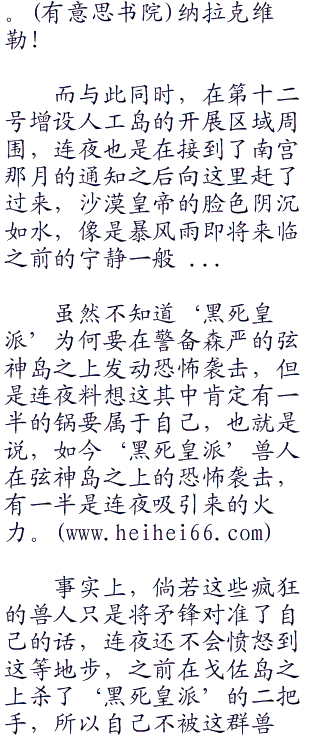 。(有意思书院)纳拉克维
勒!
而与此同时，在第十二
号增设人工岛的开展区域周
围，连夜也是在接到了南宫
那月的通知之后向这里赶了
过来，沙漠皇帝的脸色阴沉
如水，像是暴风雨即将来临
之前的宁静一般 ...
虽然不知道‘黑死皇
派’为何要在警备森严的弦
神岛之上发动恐怖袭击，但
是连夜料想这其中肯定有一
半的锅要属于自己，也就是
说，如今‘黑死皇派’兽人
在弦神岛之上的恐怖袭击，
有一半是连夜吸引来的火
力。(www.heihei66.com)
事实上，倘若这些疯狂
的兽人只是将矛锋对准了自
己的话，连夜还不会愤怒到
这等地步，之前在戈佐岛之
上杀了‘黑死皇派’的二把
手，所以自己不被这群兽